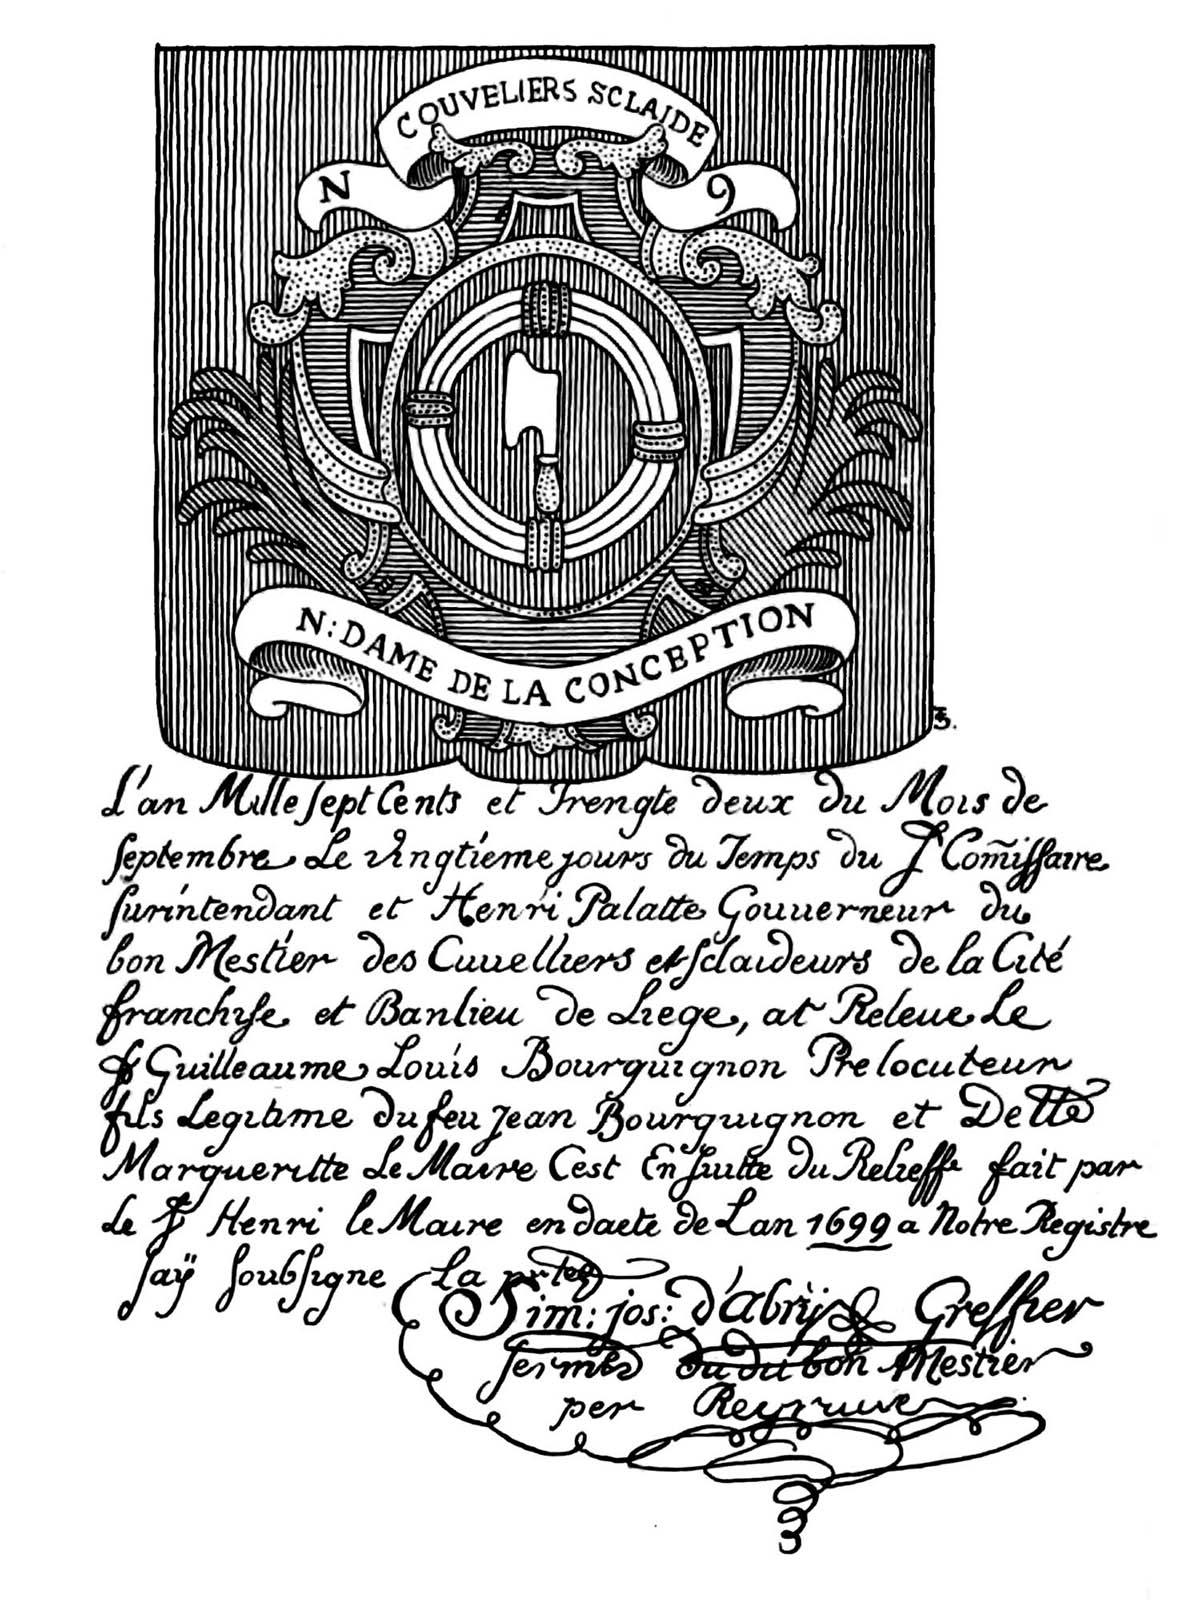 COUVELIERS SCLAIDE
N 9
N: DAME DE LA CONCEPTION
L'an Mille sept Cents et Trengte deux du Mois de
septembre Le vingtieme jours du Temps du Sr Com̃issaire
surintendant et Henri Palatte Gouuerneur du
bon Mestier des Cuuelliers et sclaideurs de la Cité
franchise et Banlieu de Liege, at Releue Le
Sr Guilleaume Louis Bourguignon Prelocuteur
fils Legitime du feu jean Bourguignon et Delle
Margueritte Le Maire Cest En suitte du Relieff fait par
Le Sr Henri le Maire en daete de Lan 1699 a Notre Registre
saÿ soubsigne La
Sim: jos: d'abrÿ Greffier
du du bon Mestier
per